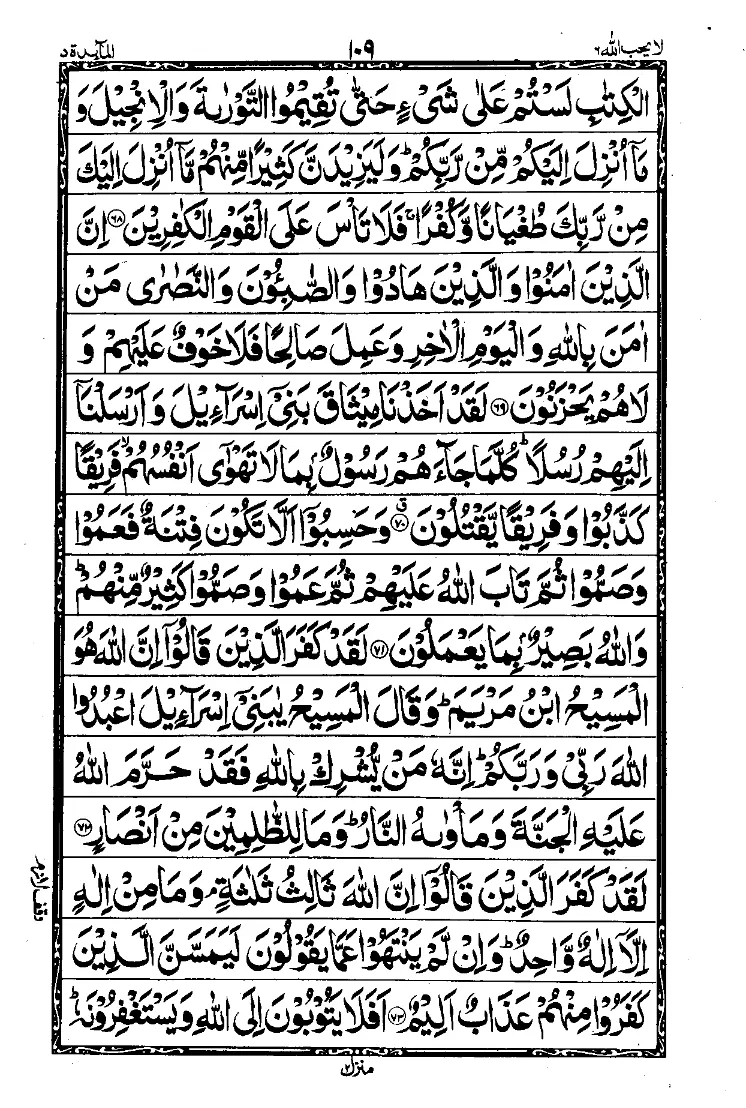 لا يحب الله ٦
١٠٩
المآئدة ٥
الْكِتٰبِ لَسْتُمْ عَلٰى شَىْءٍ حَتّٰى تُقِيْمُوا التَّوْرٰىةَ وَالْاِنْجِيْلَ وَ
مَآ اُنْزِلَ اِلَيْكُمْ مِّنْ رَّبِّكُمْ ؕ وَلَيَزِيْدَنَّ كَثِيْرًا مِّنْهُمْ مَّآ اُنْزِلَ اِلَيْكَ
مِنْ رَّبِّكَ طُغْيَانًا وَّكُفْرًا ۚ فَلَا تَاْسَ عَلَى الْقَوْمِ الْكٰفِرِيْنَ ﴿۶۸﴾ اِنَّ
الَّذِيْنَ اٰمَنُوْا وَالَّذِيْنَ هَادُوْا وَالصّٰبِـُٔوْنَ وَالنَّصٰرٰى مَنْ
اٰمَنَ بِاللّٰهِ وَالْيَوْمِ الْاٰخِرِ وَعَمِلَ صَالِحًا فَلَا خَوْفٌ عَلَيْهِمْ وَ
لَا هُمْ يَحْزَنُوْنَ ﴿۶۹﴾ لَقَدْ اَخَذْنَا مِيْثَاقَ بَنِىْٓ اِسْرَآءِيْلَ وَاَرْسَلْنَآ
اِلَيْهِمْ رُسُلًا ؕ كُلَّمَا جَآءَهُمْ رَسُوْلٌۢ بِمَا لَا تَهْوٰٓى اَنْفُسُهُمْ ۙ فَرِيْقًا
كَذَّبُوْا وَفَرِيْقًا يَّقْتُلُوْنَ ﴿۷۰﴾ ق وَحَسِبُوْٓا اَلَّا تَكُوْنَ فِتْنَةٌ فَعَمُوْا
وَصَمُّوْا ثُمَّ تَابَ اللّٰهُ عَلَيْهِمْ ثُمَّ عَمُوْا وَصَمُّوْا كَثِيْرٌ مِّنْهُمْ ؕ
وَاللّٰهُ بَصِيْرٌۢ بِمَا يَعْمَلُوْنَ ﴿۷۱﴾ لَقَدْ كَفَرَ الَّذِيْنَ قَالُوْٓا اِنَّ اللّٰهَ هُوَ
الْمَسِيْحُ ابْنُ مَرْيَمَ ؕ وَقَالَ الْمَسِيْحُ يٰبَنِىْٓ اِسْرَآءِيْلَ اعْبُدُوا
اللّٰهَ رَبِّىْ وَرَبَّكُمْ ؕ اِنَّهٗ مَنْ يُّشْرِكْ بِاللّٰهِ فَقَدْ حَرَّمَ اللّٰهُ
عَلَيْهِ الْجَنَّةَ وَمَاْوٰىهُ النَّارُ ؕ وَمَا لِلظّٰلِمِيْنَ مِنْ اَنْصَارٍ ﴿۷۲﴾
لَقَدْ كَفَرَ الَّذِيْنَ قَالُوْٓا اِنَّ اللّٰهَ ثَالِثُ ثَلٰثَةٍ ۘ وَمَا مِنْ اِلٰهٍ
اِلَّآ اِلٰهٌ وَّاحِدٌ ؕ وَاِنْ لَّمْ يَنْتَهُوْا عَمَّا يَقُوْلُوْنَ لَيَمَسَّنَّ الَّذِيْنَ
كَفَرُوْا مِنْهُمْ عَذَابٌ اَلِيْمٌ ﴿۷۳﴾ اَفَلَا يَتُوْبُوْنَ اِلَى اللّٰهِ وَيَسْتَغْفِرُوْنَهٗ ؕ
وقف لازم
منزل ٢